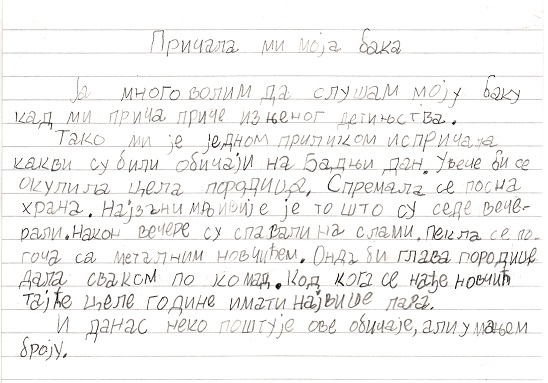 Причала ми моја бака
Ја много волим да слушам моју баку
кад ми прича приче из њеног детињства.
Тако ми је једном приликом испричала
какви су били обичаји на Бадњи дан. Увече би се
окупила цела породица. Спремала се посна
храна. Најзанимљивије је то што су седе вече-
рали. Након вечере су спавали на слами. Пекла се по-
гача са металним новчићем. Онда би глава породице
дала сваком по комад. Код кога се нађе новчић
тај ће целе године имати највише пара.
И данас неко поштује ове обичаје, али у мањем
броју.